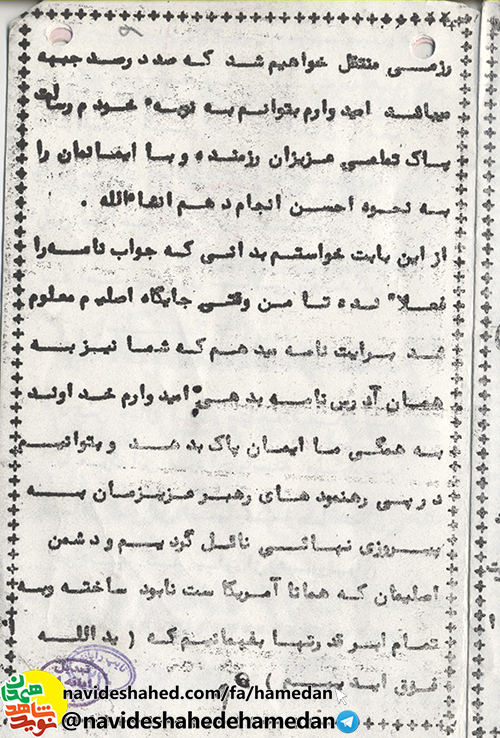 رزمی منتقل خواهیم شد که صد درصد جبهه
میباشد امیدوارم بتوانم به نوبه خودم رسالت
پاک تمامی عزیزان رزمنده و با ایمانمان را
به نحوه احسن انجام دهم انشاءالله .
از این بابت خواستم بدانی که جواب نامه را
فعلا" نده تا من وقتی جایگاه اصلیم معلوم
شد برایت نامه میدهم که شما نیز به
همان آدرس نامه بدهی، امیدوارم خداوند
به همگی ما ایمان پاک بدهد و بتوانیم
در پی رهنمودهای رهبر عزیزمان به
پیروزی نهائی نائل گردیم و دشمن
اصلیمان که همانا آمریکاست نابود ساخته و به
تمام ابر قدرتها بفهمانیم که ( ید الله
فوق ایدیهم )
navideshahed.com/fa/hamedan
@navideshahedehamedan